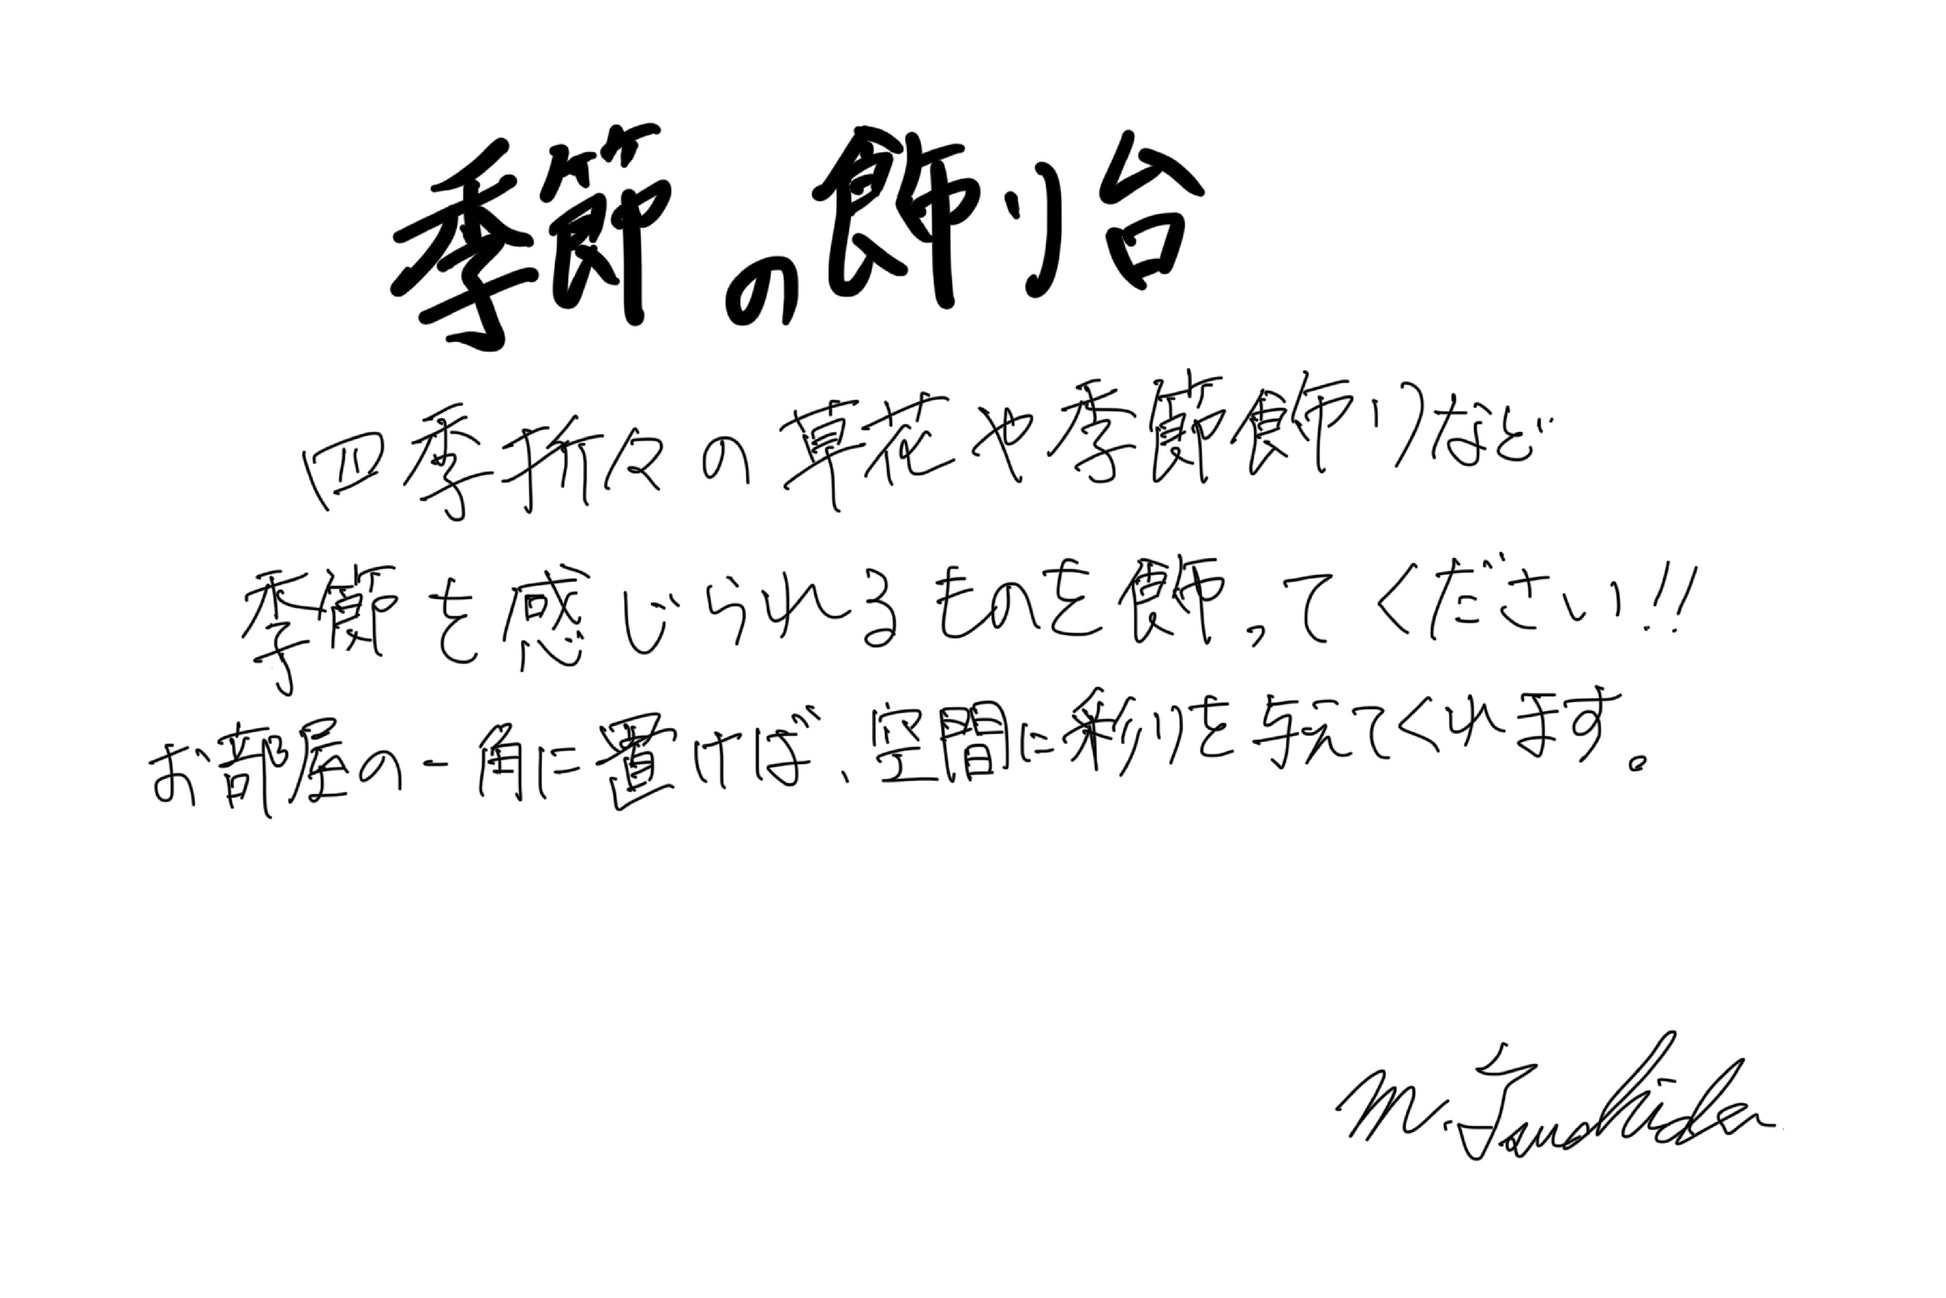 季節の飾り台
四季折々の草花や季節飾りなど
季節を感じられるものを飾ってください!!
お部屋の一角に置けば、空間に彩りを与えてくれます。
M.